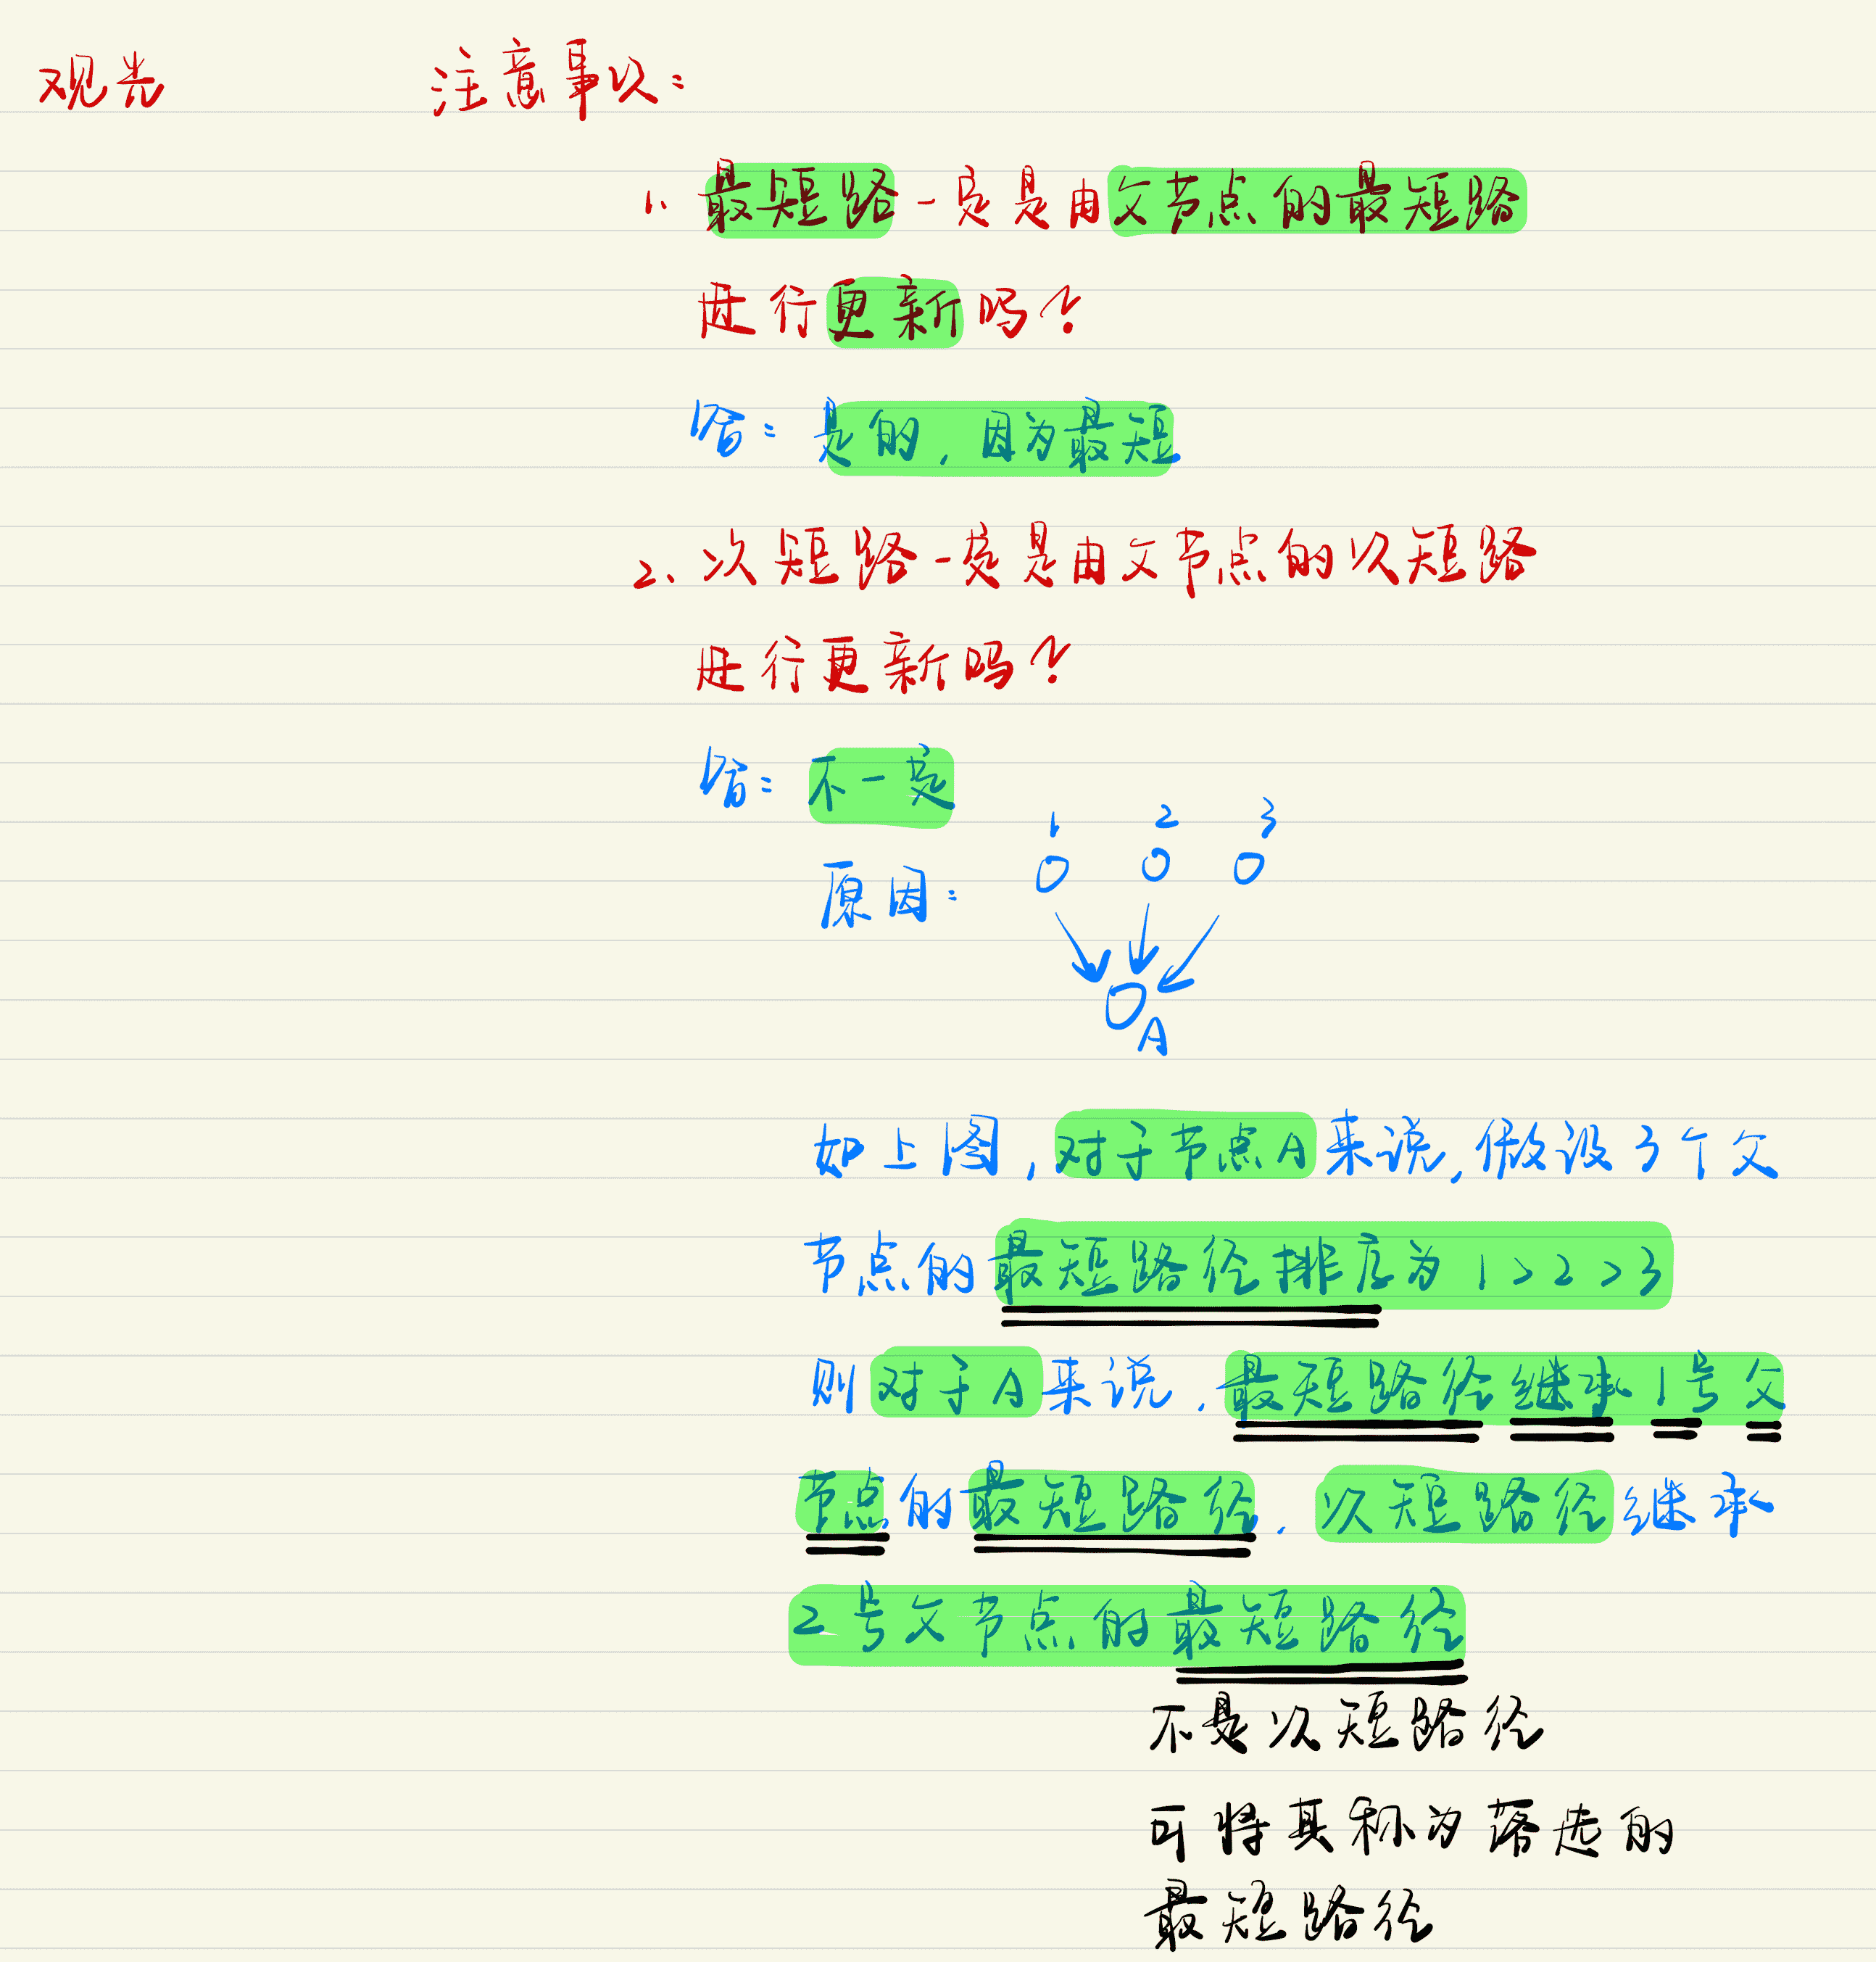 观光 注意事项:
1. 最短路一定是由父节点的最短路
进行更新吗?
答: 是的, 因为最短
2. 次短路一定是由父节点的次短路
进行更新吗?
答: 不一定
1 2 3
原因:
A
如上图, 对于节点A来说, 假设3个父
节点的最短路径排序为1>2>3
则对于A来说, 最短路径继承1号父
节点的最短路径, 次短路径继承
2号父节点的最短路径
不是次短路径
可将其称为落选的
最短路径